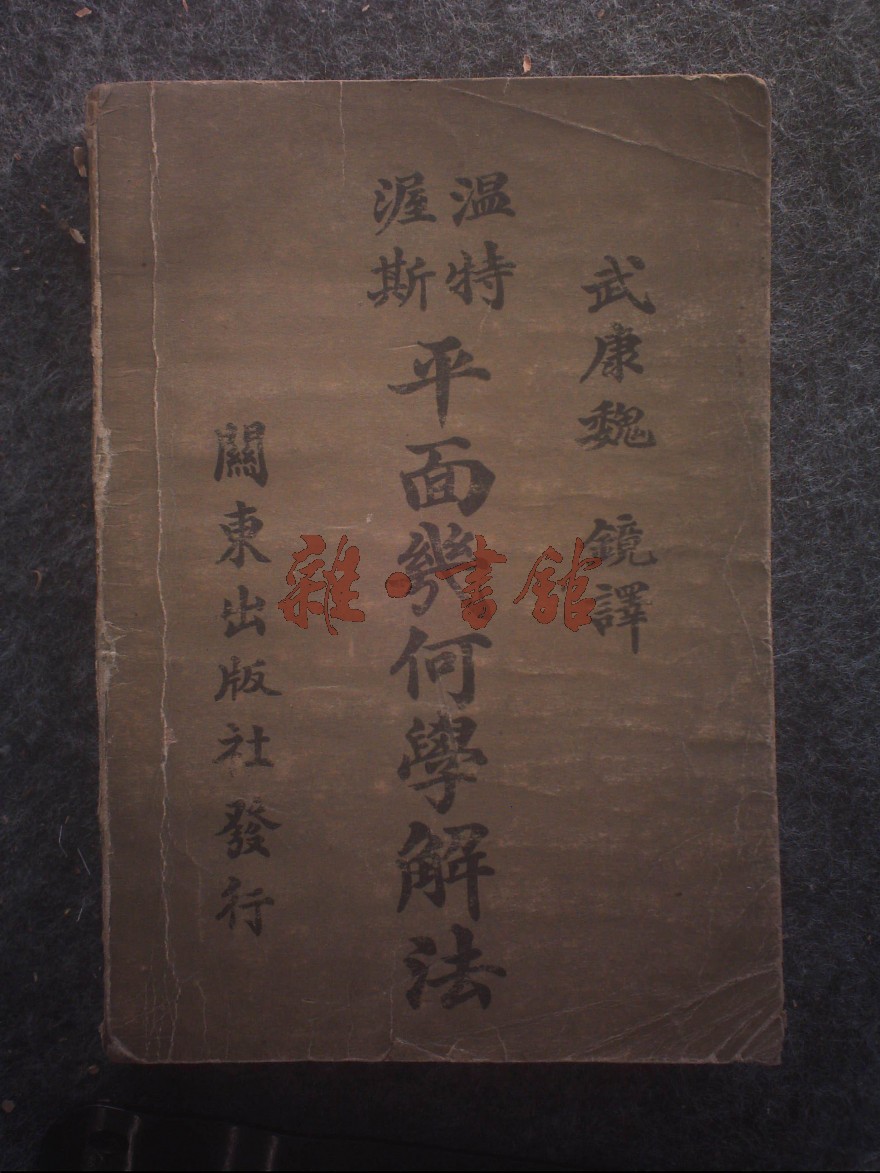 武康魏 鏡譯
温特
渥斯
平面幾何學解法
關東出版社發行
雜·書館